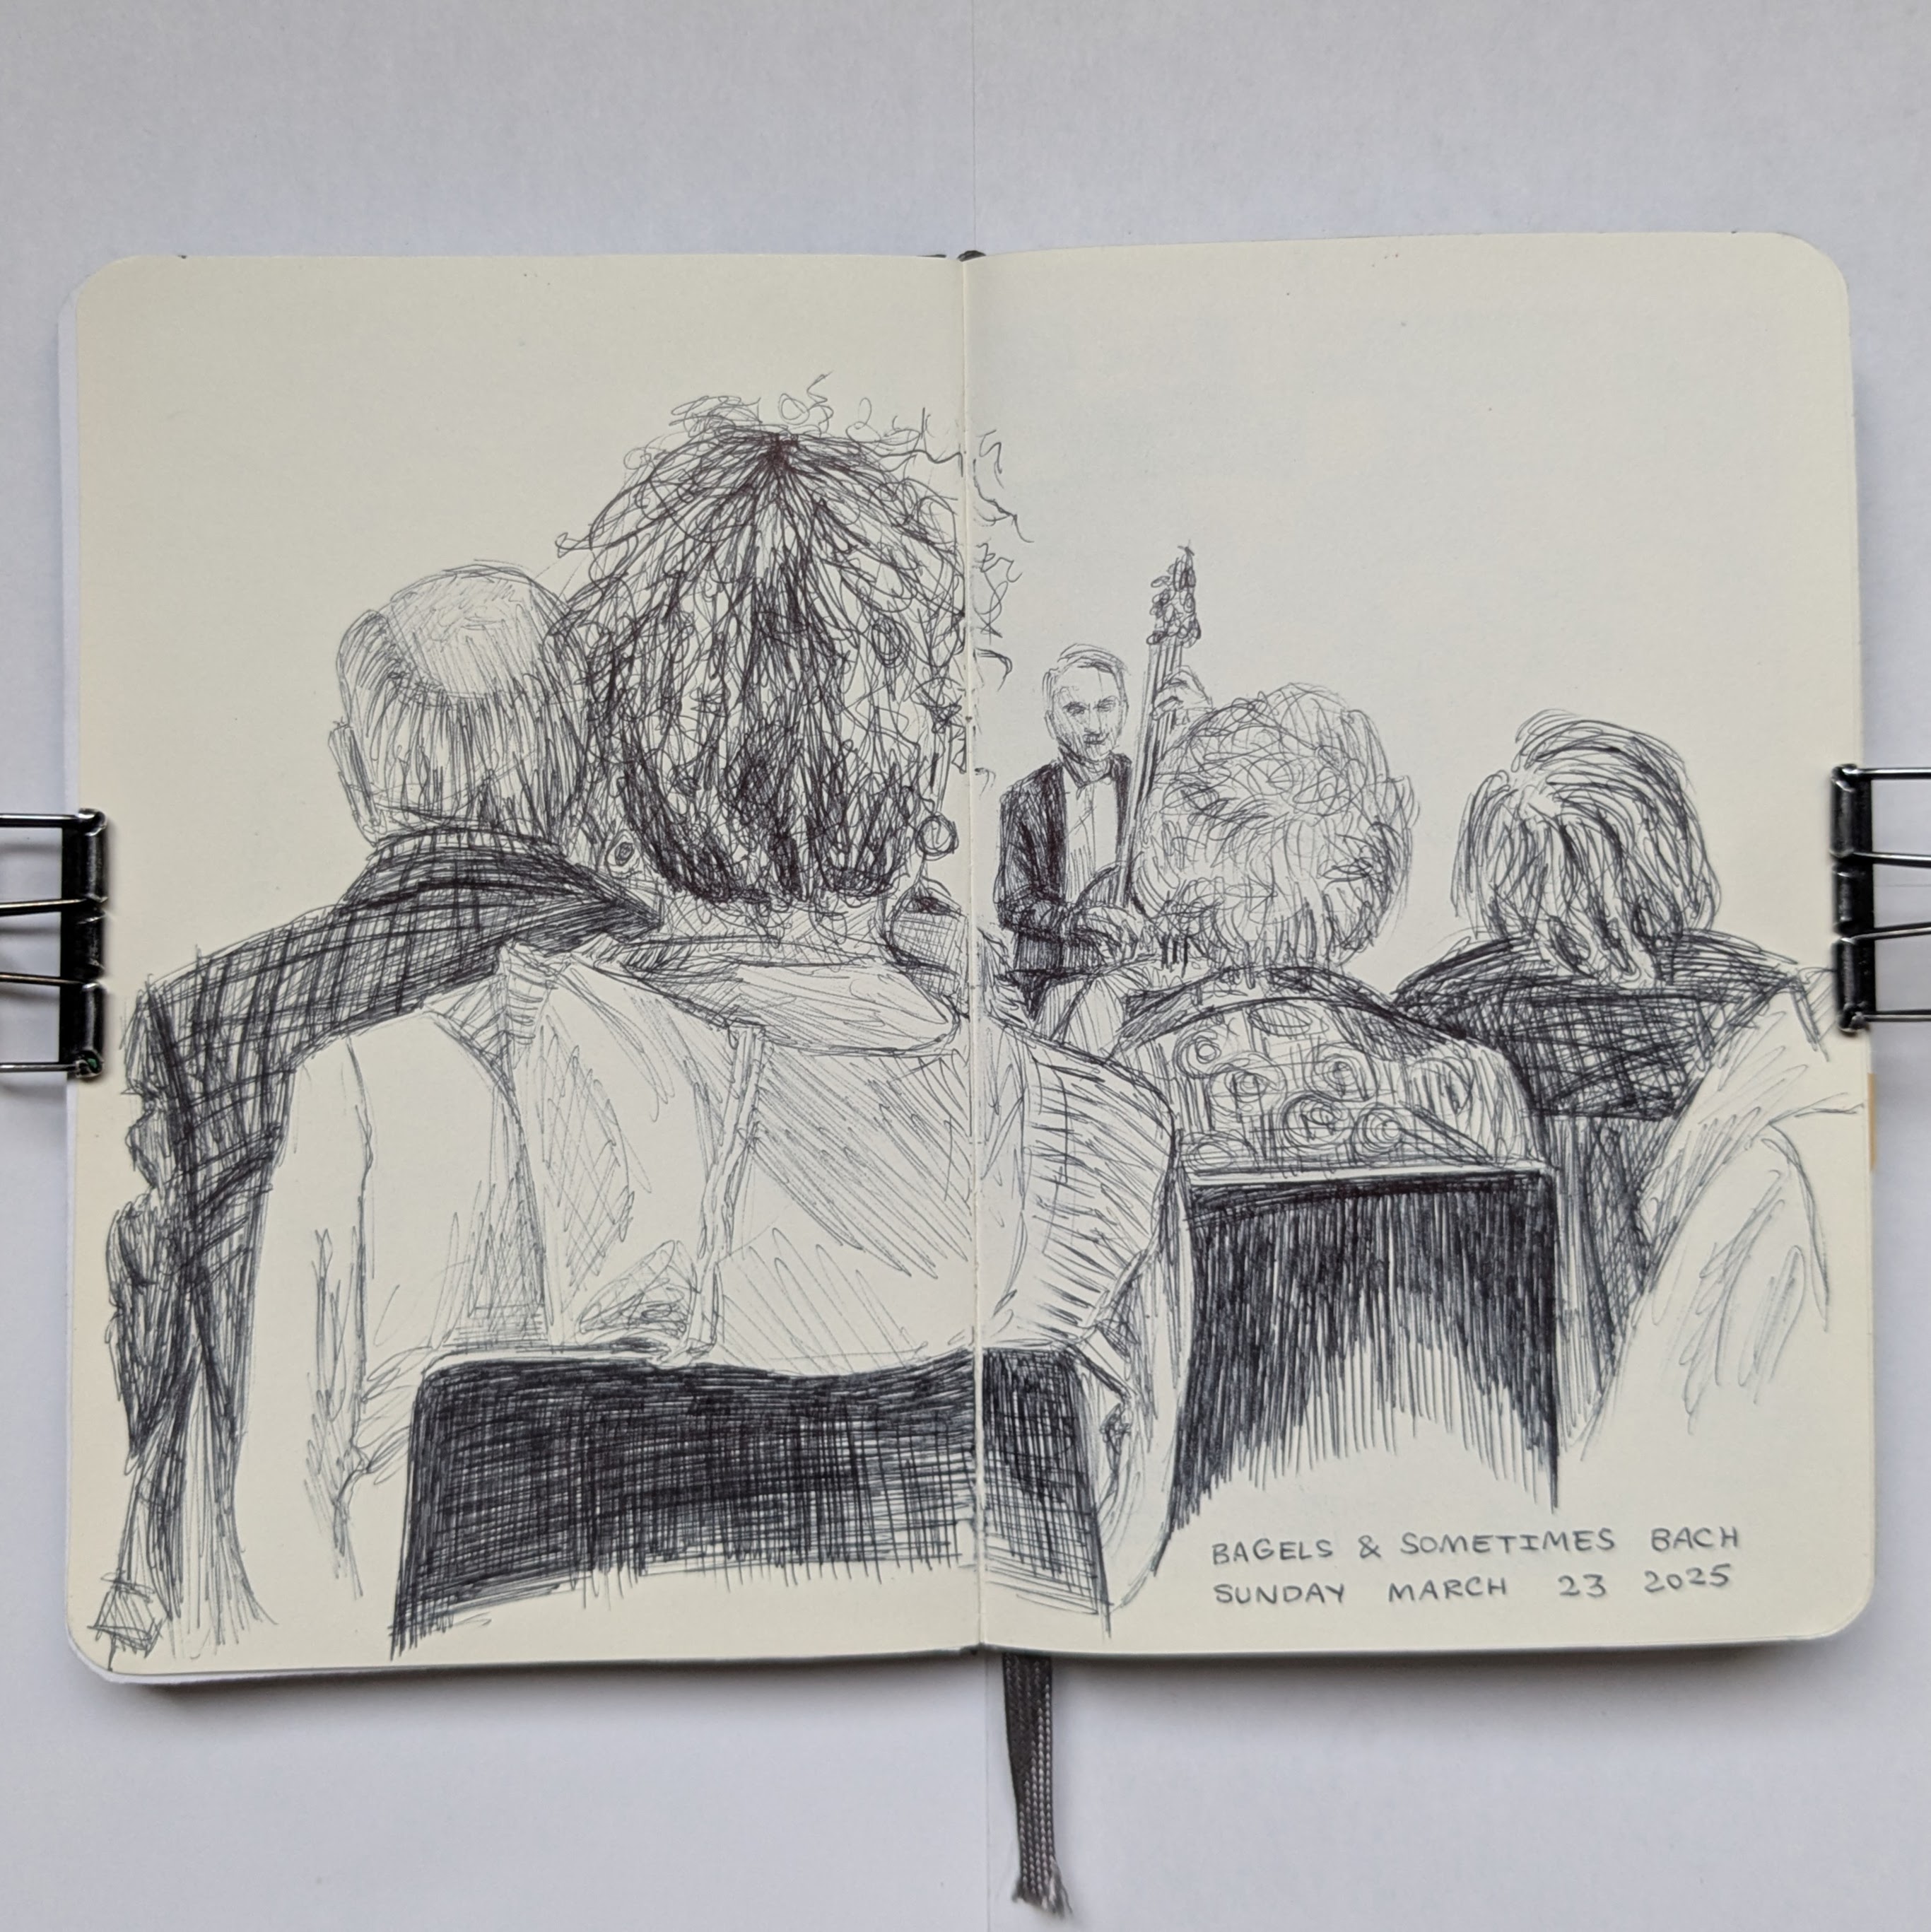 BAGELS & SOMETIMES BACH
SUNDAY MARCH 23 2025